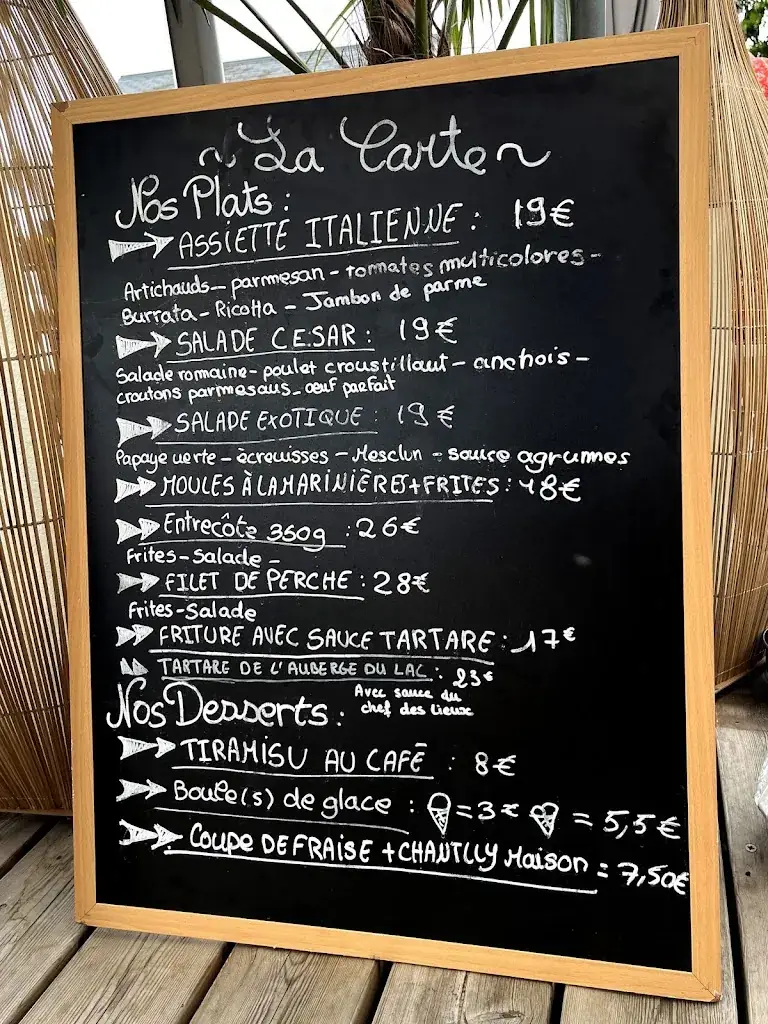 ~ La Carte ~
Nos Plats :
ASSIETTE ITALIENNE : 19€
Artichauds - parmesan - tomates multicolores -
Burrata - Ricotta - Jambon de parme
SALADE CESAR : 19€
Salade romaine - poulet croustillant - anchois -
croutons parmesans - œuf parfait
SALADE EXOTIQUE : 19€
Papaye verte - écrevisses - Mesclun - sauce agrumes
MOULES À LA MARINIÈRES + FRITES : 18€
Entrecôte 350g : 26€
Frites - Salade -
FILET DE PERCHE : 28€
Frites - Salade
FRITURE AVEC SAUCE TARTARE : 17€
TARTARE DE L'AUBERGE DU LAC : 23€
Avec sauce du
chef des lieux
Nos Desserts :
TIRAMISU AU CAFÉ : 8€
Boule(s) de glace : = 3€ = 5,5€
Coupe DE FRAISE + CHANTLLY Maison = 7,50€